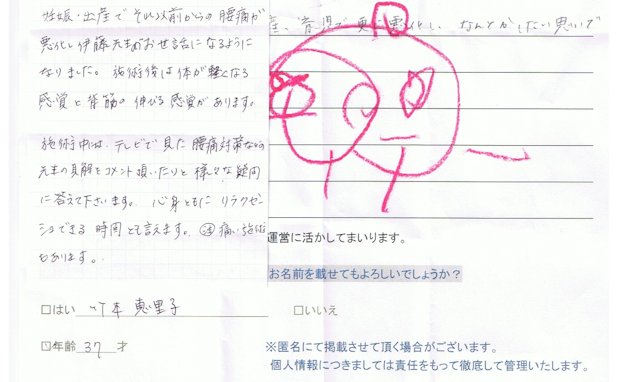 妊娠・出産でそれ以前からの腰痛が
悪化し伊藤先生がお世話になるように
なりました。施術後は体が軽くなる
感覚と背筋の伸びる感覚があります。
施術中は、テレビで見た腰痛対策などの
先生の見解をコメント頂いたりと様々な疑問
に答えて下さいます。心身ともにリラクゼー
ションできる時間とも言えます。痛い施術
もあります。
産、育児で更に悪化し、なんとかしたい思いで
運営に活かしてまいります。
お名前を載せてもよろしいでしょうか？
□はい 竹本 恵里子 □いいえ
□年齢 37 才
※匿名にて掲載させて頂く場合がございます。
個人情報につきましては責任をもって徹底して管理いたします。